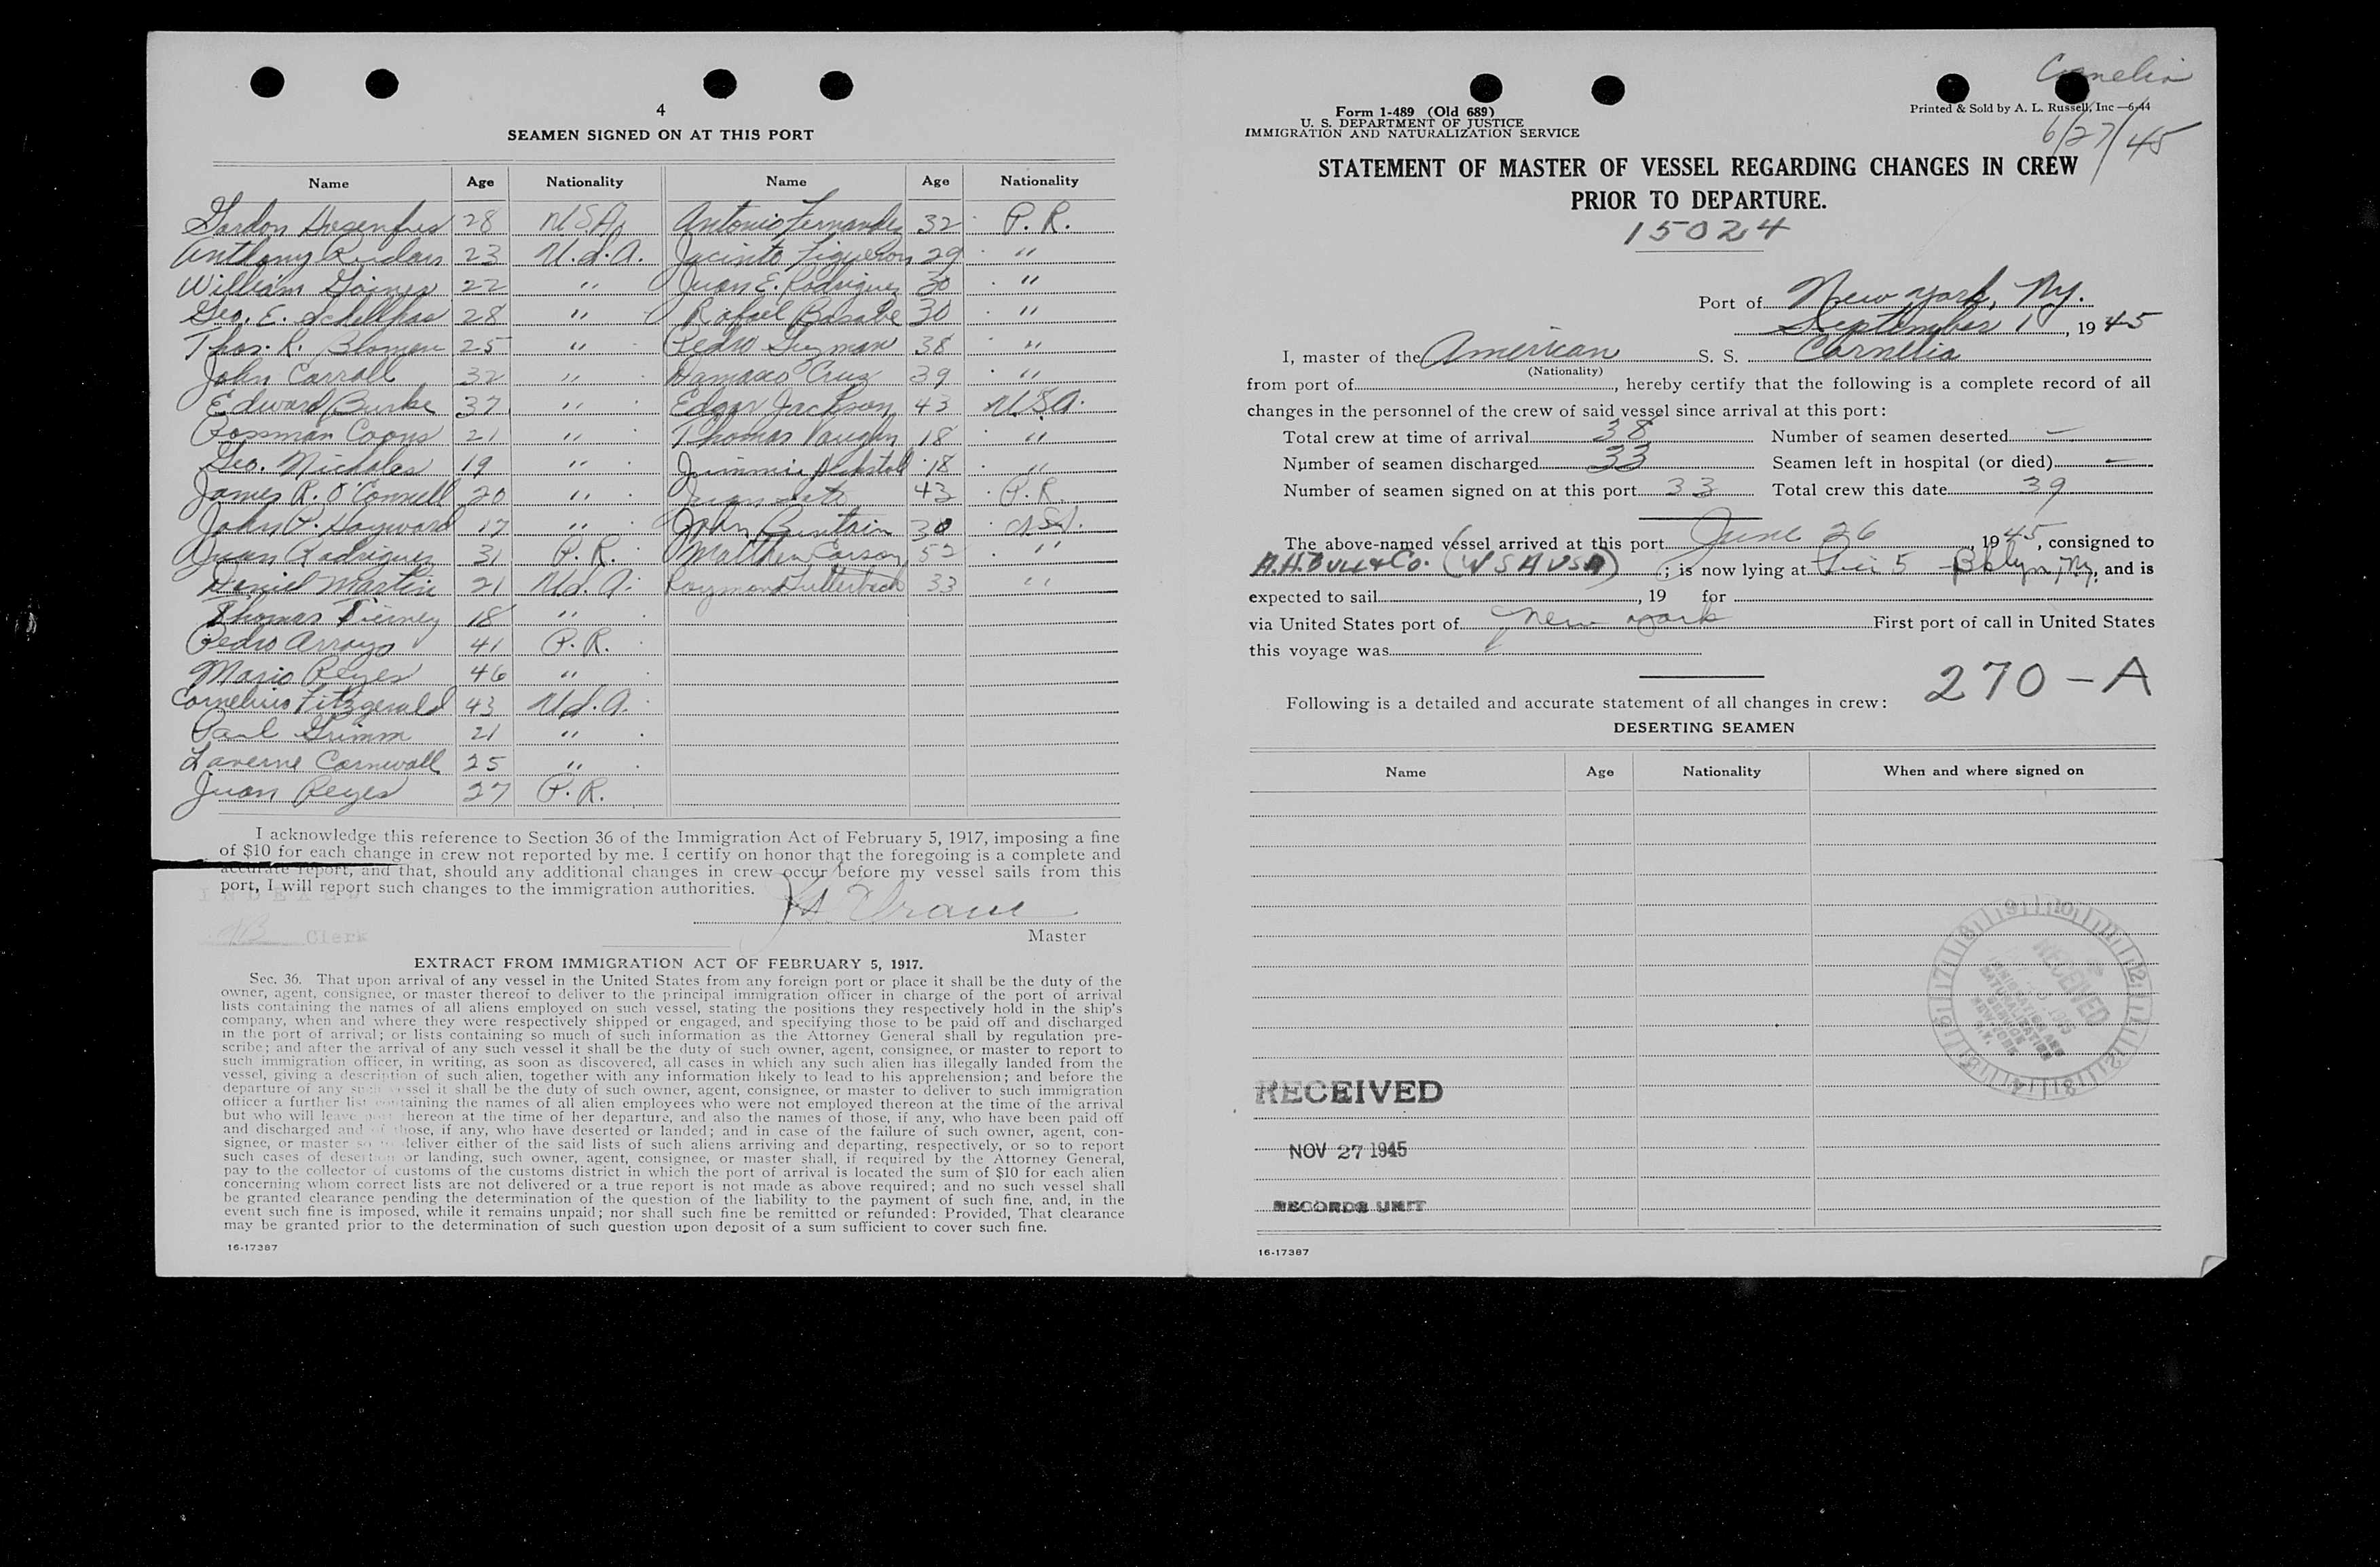 4
SEAMEN SIGNED ON AT THIS PORT
Name Age Nationality Name Age Nationality
Gordon 28 U.S.A. Antonio Fernandez 32 P. R.
Anthony 23 U.S.A. Jacinto Figueroa 29 "
William Gaines 22 " Juan E. Rodriguez 30 "
Geo. E. 28 " Rafael Basabe 30 "
Thos. R. 25 " Pedro Guzman 38 "
John Carroll 32 " Damaso Cruz 39 "
Edward Burke 37 " Edgar Jackson 43 U.S.A.
Rossman Coons 21 " Thomas Vaughn 18 "
Geo. Nicholas 19 " Jimmie 18 "
James R. O'Connell 20 " 43 P.R.
John P. Hayward 17 " John 30 U.S.A.
Juan Rodriguez 31 P. R. Matthew Carson 52 "
Daniel Martin 21 U.S.A. Raymond 33 "
Thomas Tierney 18 "
Pedro Arroyo 41 P. R.
Mario Reyes 46 "
Cornelius Fitzgerald 43 U.S.A.
Paul Grimm 21 "
Laverne Cornwall 25 "
Juan Reyes 27 P. R.
I acknowledge this reference to Section 36 of the Immigration Act of February 5, 1917, imposing a fine
of $10 for each change in crew not reported by me. I certify on honor that the foregoing is a complete and
accurate report, and that, should any additional changes in crew occur before my vessel sails from this
port, I will report such changes to the immigration authorities.
INDEXED
Clerk
Master
EXTRACT FROM IMMIGRATION ACT OF FEBRUARY 5, 1917.
Sec. 36. That upon arrival of any vessel in the United States from any foreign port or place it shall be the duty of the
owner, agent, consignee, or master thereof to deliver to the principal immigration officer in charge of the port of arrival
lists containing the names of all aliens employed on such vessel, stating the positions they respectively hold in the ship's
company, when and where they were respectively shipped or engaged, and specifying those to be paid off and discharged
in the port of arrival; or lists containing so much of such information as the Attorney General shall by regulation pre-
scribe; and after the arrival of any such vessel it shall be the duty of such owner, agent, consignee, or master to report to
such immigration officer, in writing, as soon as discovered, all cases in which any such alien has illegally landed from the
vessel, giving a description of such alien, together with any information likely to lead to his apprehension; and before the
departure of any such vessel it shall be the duty of such owner, agent, consignee, or master to deliver to such immigration
officer a further list containing the names of all alien employees who were not employed thereon at the time of the arrival
but who will leave port thereon at the time of her departure, and also the names of those, if any, who have been paid off
and discharged and of those, if any, who have deserted or landed; and in case of the failure of such owner, agent, con-
signee, or master so to deliver either of the said lists of such aliens arriving and departing, respectively, or so to report
such cases of desertion or landing, such owner, agent, consignee, or master shall, if required by the Attorney General,
pay to the collector of customs of the customs district in which the port of arrival is located the sum of $10 for each alien
concerning whom correct lists are not delivered or a true report is not made as above required; and no such vessel shall
be granted clearance pending the determination of the question of the liability to the payment of such fine, and, in the
event such fine is imposed, while it remains unpaid; nor shall such fine be remitted or refunded: Provided, That clearance
may be granted prior to the determination of such question upon deposit of a sum sufficient to cover such fine.
16-17387
Cornelia
6/27/45
Form 1-489 (Old 689)
U. S. DEPARTMENT OF JUSTICE
IMMIGRATION AND NATURALIZATION SERVICE
Printed & Sold by A. L. Russell, Inc —6-44
STATEMENT OF MASTER OF VESSEL REGARDING CHANGES IN CREW
PRIOR TO DEPARTURE.
15024
Port of New York, Ny.
September 1, 1945
I, master of the American S. S. Cornelia
(Nationality)
from port of, hereby certify that the following is a complete record of all
changes in the personnel of the crew of said vessel since arrival at this port:
Total crew at time of arrival 38 Number of seamen deserted —
Number of seamen discharged 33 Seamen left in hospital (or died) —
Number of seamen signed on at this port 33 Total crew this date 39
The above-named vessel arrived at this port June 26, 1945, consigned to
A.H. Bull & Co. (WSA USA); is now lying at Pier 5 Bklyn, Ny, and is
expected to sail, 19 for
via United States port of New York First port of call in United States
this voyage was
270-A
Following is a detailed and accurate statement of all changes in crew:
DESERTING SEAMEN
Name Age Nationality When and where signed on
RECEIVED
IMMIGRATION AND NATURALIZATION SERVICE
RECEIVED
NOV 27 1945
RECORDS UNIT
16-17387